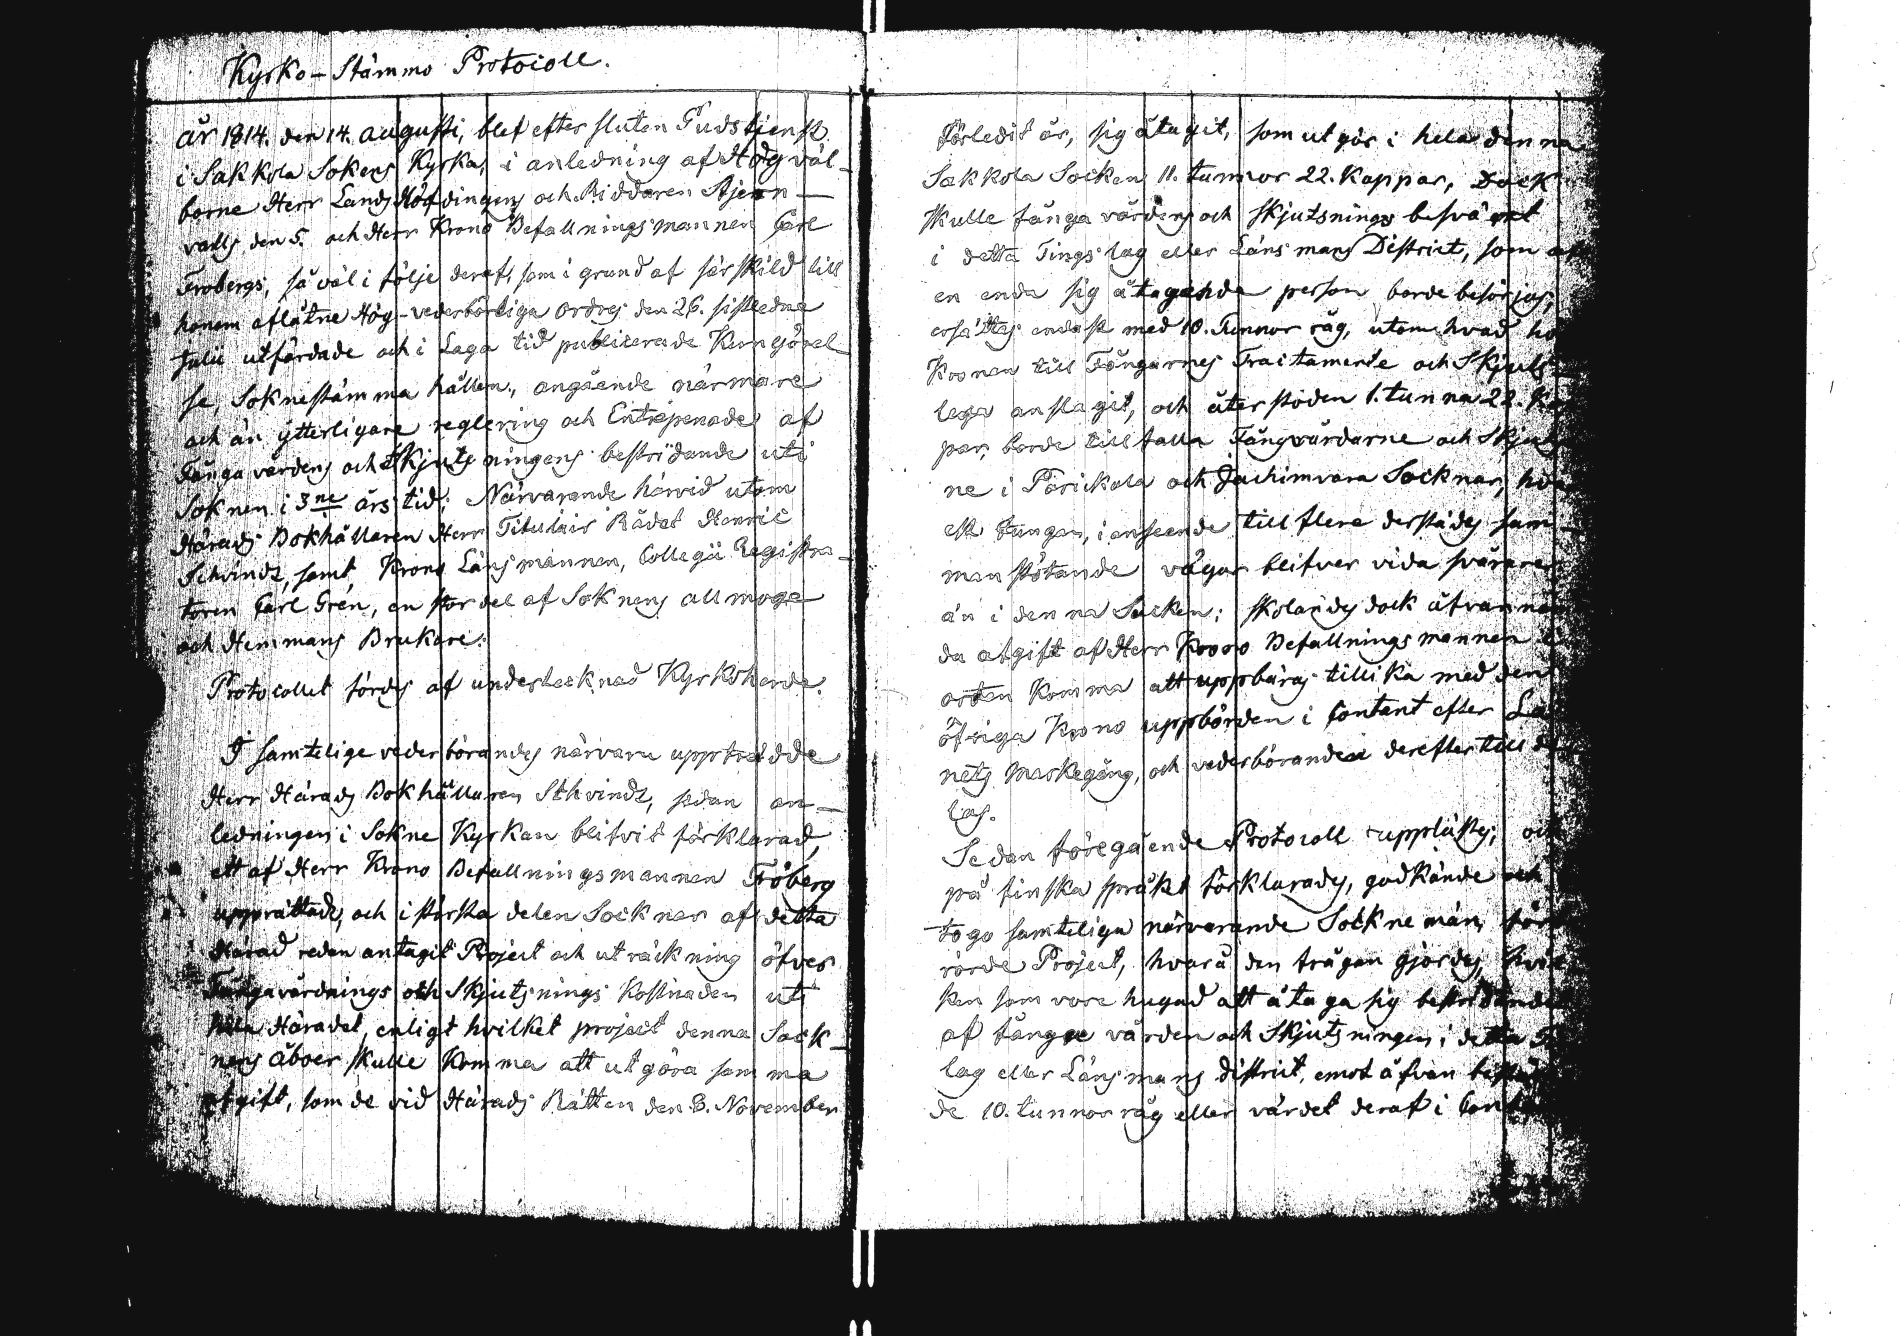 Kyrko-Stämmo Protocoll.
år 1814. den 14. augusti, blef efter sluten Gudstjenst
i Sakkola Sokens Kyrka, i anledning af Högväl-
borne Herr Landshöfdingens och Riddaren Stjern-
valls den 5. och Herr Krono Befallningsmannen Carl
Frobergs, så väl i följe deraf, som i grund af särskild till
honom aflåtne Hög-vederbörliga ordres den 26. sistledne
Julii utfärdade och i Laga tid publicerade Kungörel
se, Soknestämma hållen, angående närmare
och än ytterligare reglering och Entrepenade af
Fånga vårdens och Skjutsningens bestridande uti
Soknen i 3ne års tid; Närvarande härvid utom
Härads Bokhållaren Herr Titulair Rådet Henric
Schvindt, samt Krono Länsmannen, Collegii Registra-
toren Carl Grén, en stor del af Soknens allmoge
och Hemmans Brukare:
Protocollet fördes af undertecknad Kyrkoherde.
I samtelige vederbörandes närvaru uppträdde
Herr Härads Bokhållaren Schvindt, sedan an-
ledningen i Sokne Kyrkan blifvit förklarad,
ett af Herr Krono Befallningsmannen Fröberg
upprättade, och i största delen Socknar af detta
Härad redan antagit Project och uträckning öfver
Fångavårdnings och Skjutsnings Kostnaden uti
hela Häradet, enligt hvilket project denna Sock-
nens åboer skulle Komma att utgöra samma
afgift, som de vid Härads Rätten den 3. November
förledit år, sig åtagit, som utgör i hela denna
Sakkola Socken 11. tunnor 22. Kappar, Dock
skulle fånga vårdens och skjutsnings besväret
i detta Tingslag eller Länsmans District, som af
en enda sig åtagande person borde besörjas,
ersättas endast med 10. Tunnor råg, utom hvad
Kronan till Fångarnes Traitamente och Skjuts-
lega anslagit, och återstoden 1. tunna 22. Kap
par, borde tillfalla Fångvårdarne och Skjuts
ne i Pärickala och Jachimvara Socknar,
est tungan, i anseende till flere derstädes sam-
manstötande vägar blifver vida svårare
än i denna Socken; skolandes dock äfvannäm
da afgift af Herr Krono Befallningsmannen i
orten Komma att uppbäras tillika med den
öfriga Krono uppbörden i Contant efter Lä
nets Markegång, och vederböranden derefter till
las.
Sedan föregående Protocoll upplästs, och
på finska språket förklarads, godkände och
togo samteliga närvarande Socknemän, före
rörde Project, hvarå den frågan gjordes,
ken som vore hugad att åtaga sig bestridandet
af fånge vården och Skjutsningen i detta
lag eller Länsmans district, emot äfvan bestäm
de 10. tunnor råg eller värdet deraf i Contant